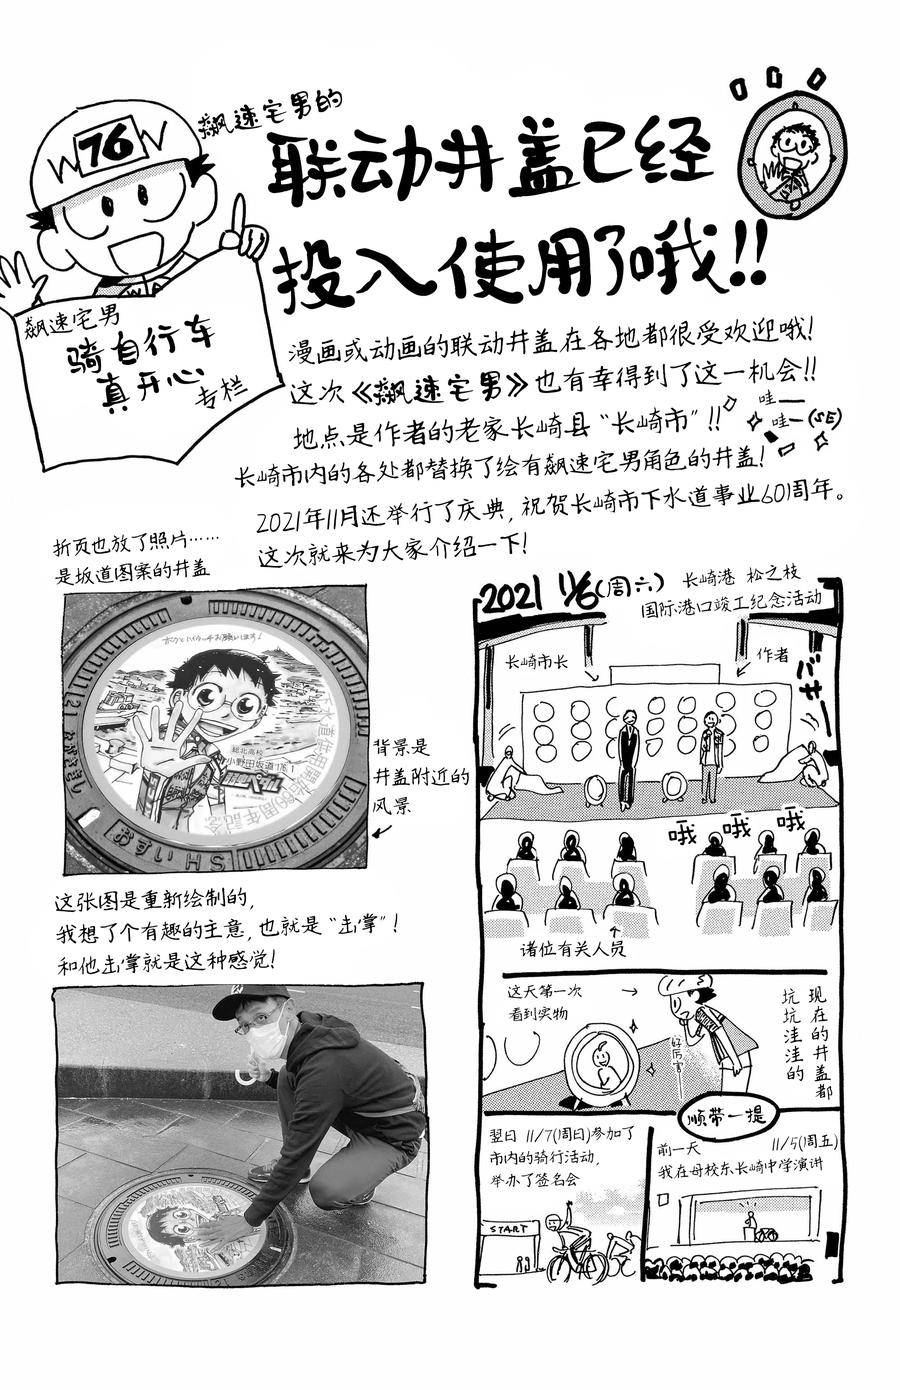 飙速宅男的
联动井盖已经
投入使用了哦!!
W 76 W
飙速宅男
骑自行车
真开心
专栏
漫画或动画的联动井盖在各地都很受欢迎哦!
这次《飙速宅男》也有幸得到了这一机会!!
地点是作者的老家长崎县“长崎市”!!
哇—
哇—(SE)
长崎市内的各处都替换了绘有飙速宅男角色的井盖!
2021年11月还举行了庆典,祝贺长崎市下水道事业601周年。
这次就来为大家介绍一下!
折页也放了照片……
是坂道图案的井盖
総北高校
小野田坂道
おすい HS
背景是
井盖附近的
风景
这张图是重新绘制的,
我想了个有趣的主意,也就是“击掌”!
和他击掌就是这种感觉!
2021 11/6(周六)
长崎港 松之枝
国际港口竣工纪念活动
长崎市长
作者
バサー
哦 哦 哦
诸位有关人员
这天第一次
看到实物
好厉害
现在的井盖都
坑坑洼洼的
顺带一提
翌日 11/7(周日)参加了
市内的骑行活动,
举办了签名会
START
前一天 11/5(周五)
我在母校东长崎中学演讲